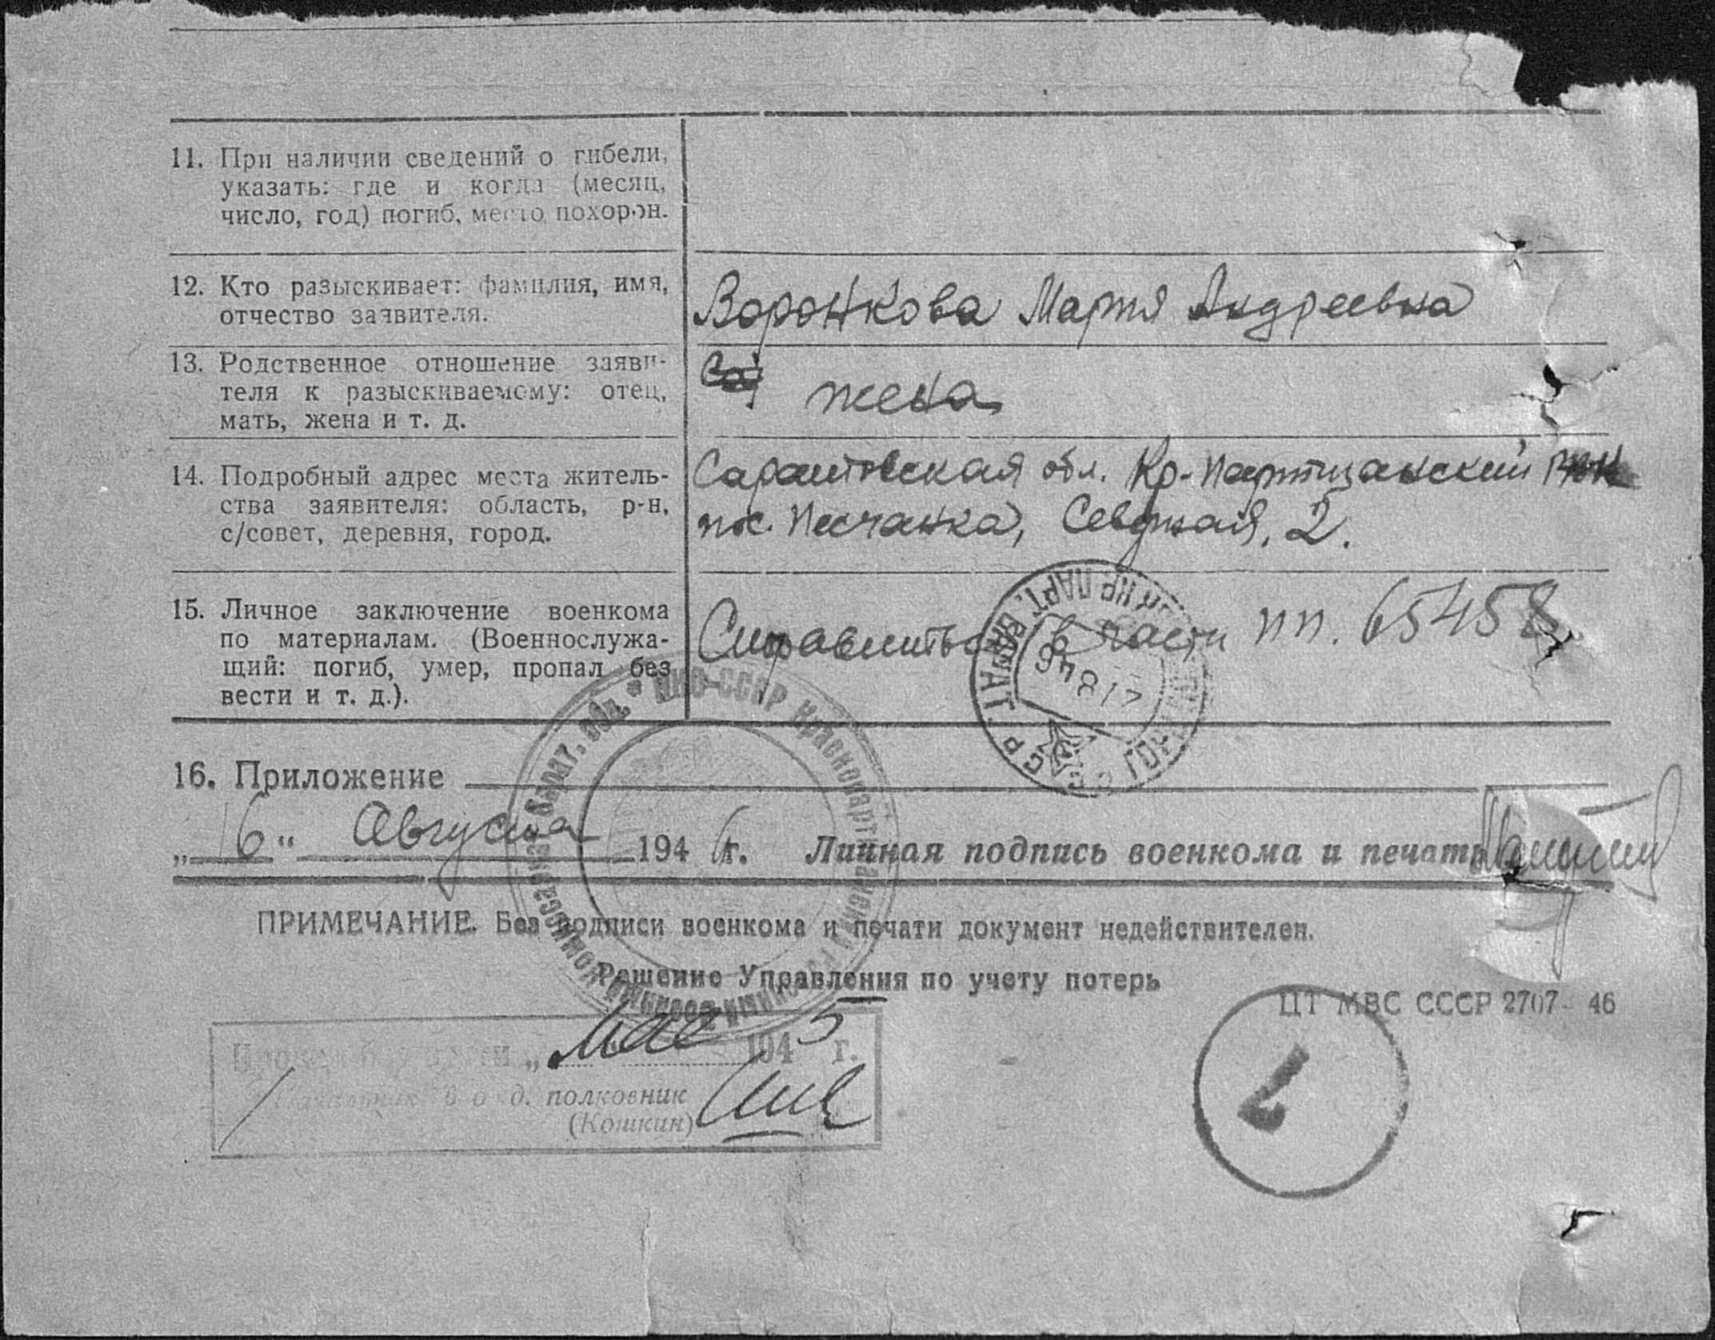 11. При наличии сведений о гибели,
указать: где и когда (месяц,
число, год) погиб, место похорон.
12. Кто разыскивает: фамилия, имя,
отчество заявителя.
Воронкова Мария Андреевна
13. Родственное отношение заяви-
теля к разыскиваемому: отец,
мать, жена и т. д.
жена
14. Подробный адрес места житель-
ства заявителя: область, р-н,
с/совет, деревня, город.
Саратовская обл. Кр-Партизанский
пос. Песчанка, Северная, 2.
15. Личное заключение военкома
по материалам. (Военнослужа-
щий: погиб, умер, пропал без
вести и т. д.).
Справиться в части пп. 65458
16. Приложение
„16“ Августа 1946 г. Личная подпись военкома и печать
ПРИМЕЧАНИЕ. Без подписи военкома и печати документ недействителен.
Решение Управления по учету потерь
ЦТ МВС СССР 2707 - 46
„ мае 1945 г.
полковник
(Кошкин)
НКО-СССР Краснопартизанский Сарат. обл.
КР ПАРТ.
17 8 46